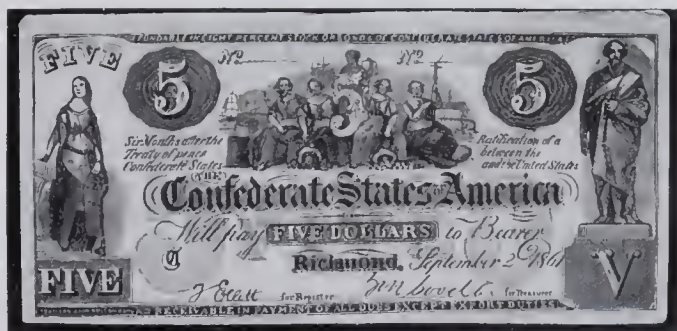 FUNDABLE IN EIGHT PERCENT STOCK OR BONDS OF CONFEDERATE STATES OF AMERICA
FIVE
5
No
No
5
5
Six Months after the
Treaty of peace
Confederate States
Ratification of a
between the
and the United States
THE
Confederate States of America
Will pay FIVE DOLLARS to Bearer
Richmond, September 2d 1861
FIVE
V
for Register
for Treasurer
RECEIVABLE IN PAYMENT OF ALL DUES EXCEPT EXPORT DUTIES